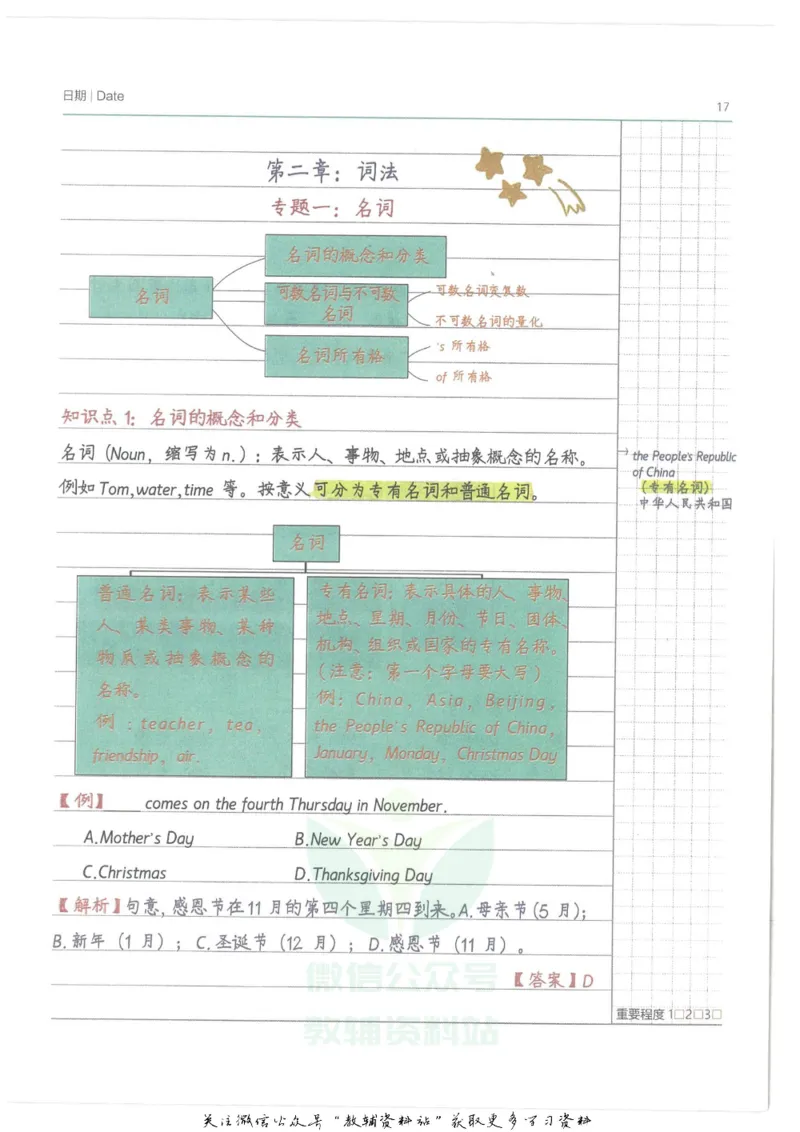 日期 | Date
17
第二章：词法
专题一：名词
名词的概念和分类
名词
可数名词与不可数
名词
可数名词变复数
不可数名词的量化
名词所有格
's 所有格
of 所有格
知识点 1：名词的概念和分类
名词（Noun，缩写为 n.）：表示人、事物、地点或抽象概念的名称。
例如 Tom,water,time 等。按意义可分为专有名词和普通名词。
→ the People's Republic
of China
（专有名词）
中华人民共和国
名词
普通名词：表示某些
人、某类事物、某种
物质或抽象概念的
名称。
例：teacher，tea，
friendship，air.
专有名词：表示具体的人、事物、
地点、星期、月份、节日、团体、
机构、组织或国家的专有名称。
（注意：第一个字母要大写）
例：China，Asia，Beijing，
the People's Republic of China，
January，Monday，Christmas Day
【例】____ comes on the fourth Thursday in November.
A.Mother's Day B.New Year's Day
C.Christmas D.Thanksgiving Day
【解析】句意，感恩节在 11 月的第四个星期四到来。A.母亲节(5 月)；
B.新年（1 月）；C.圣诞节（12 月）；D.感恩节（11 月）。
【答案】D
微信公众号
教辅资料站
重要程度 1□2□3□
关注微信公众号“教辅资料站”获取更多学习资料